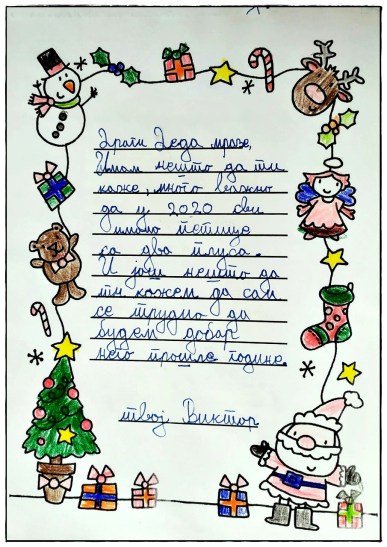 Драги Деда мразе,
Имам нешто да ти
каже, много важно
да у 2020 сви
имамо петице
са два плуса.
И још нешто да
ти кажем да сам
се трудио да
будем добар
него прошле године.
твој Виктор